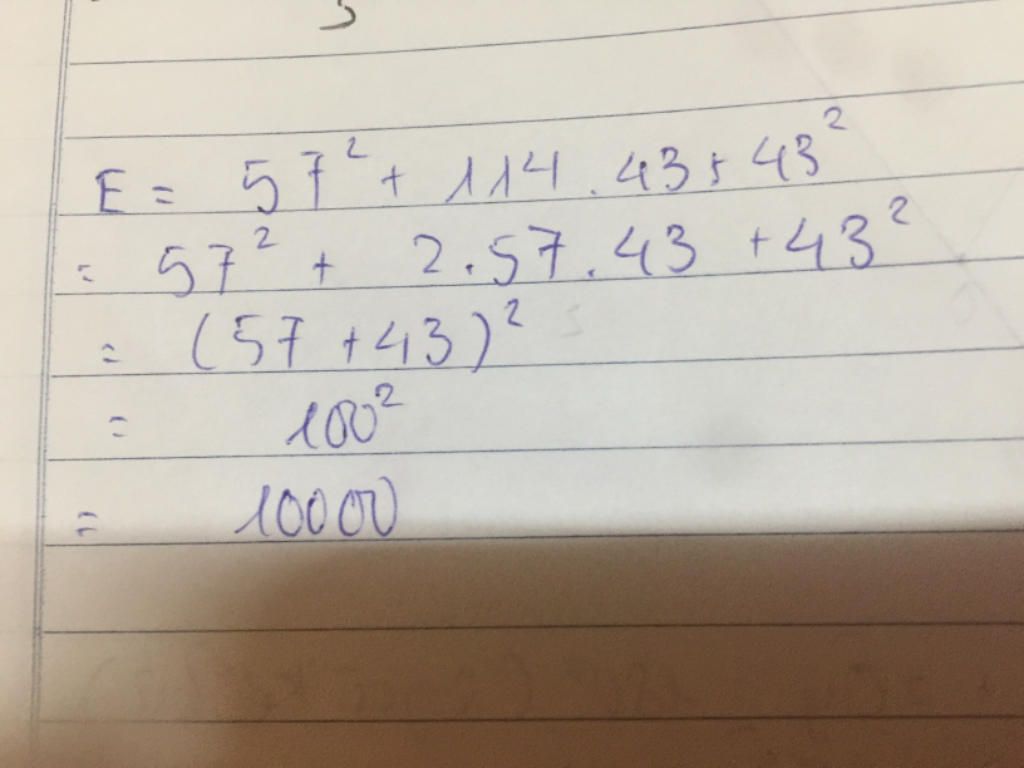 E = 57² + 114 . 43 + 43²
= 57² + 2 . 57 . 43 + 43²
= (57 + 43)²
= 100²
= 10000